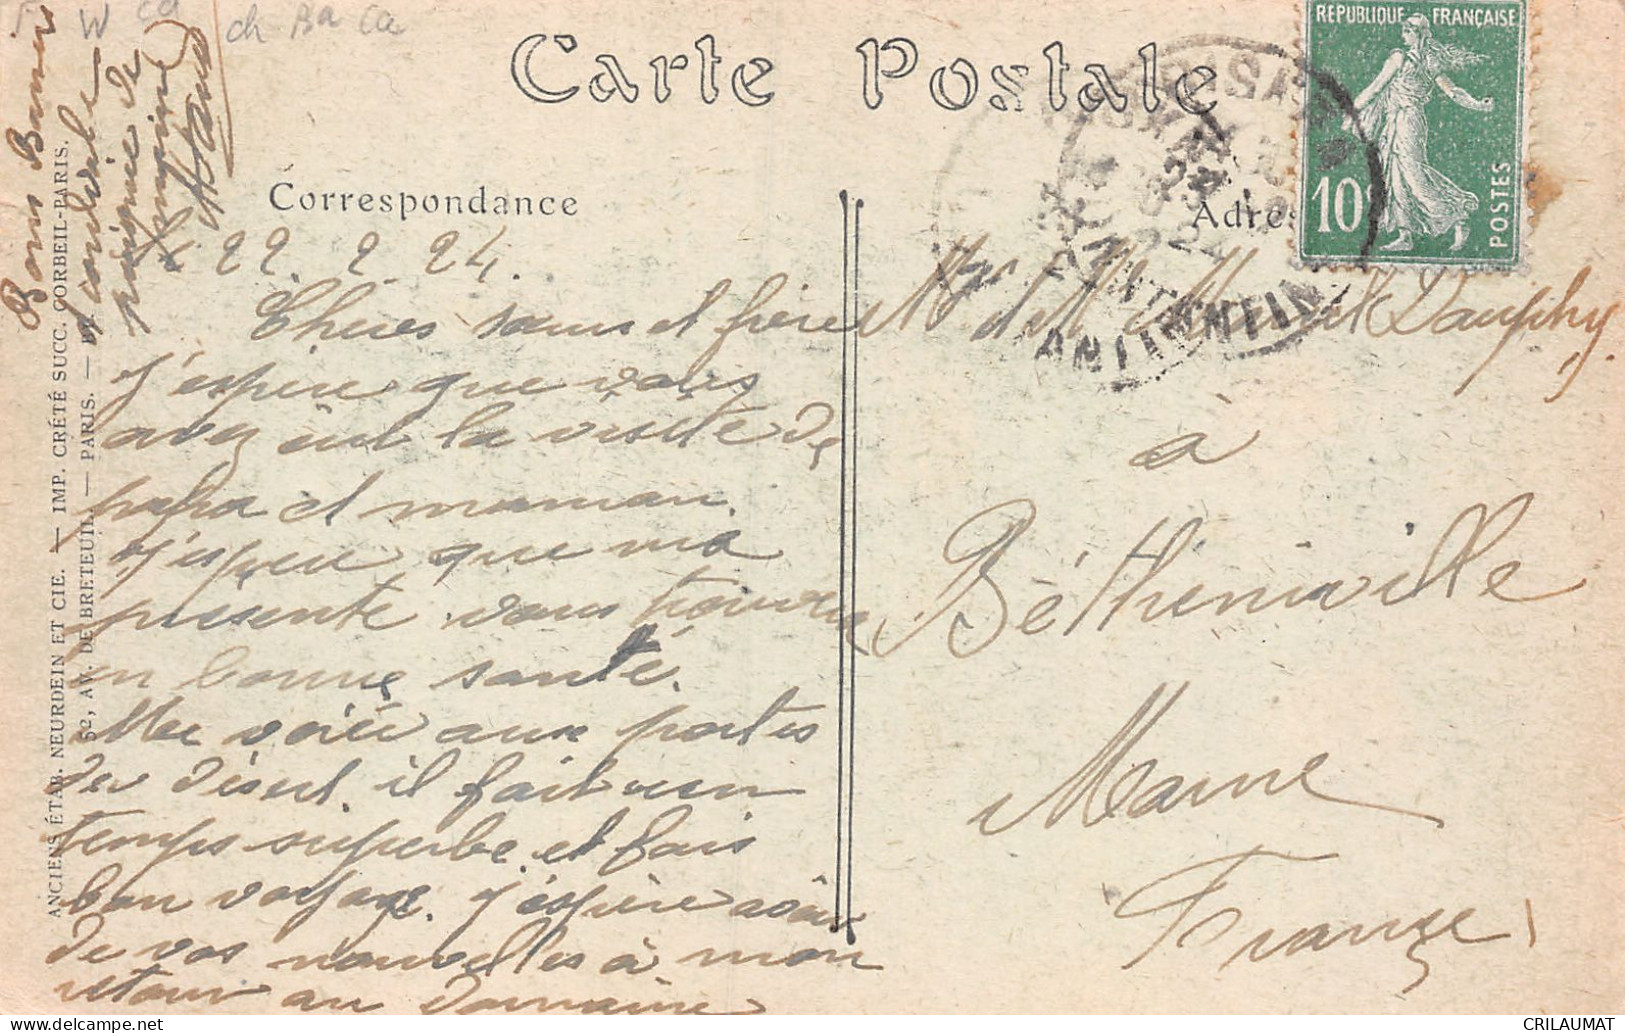 ch Ba Ca
Carte Postale
REPUBLIQUE FRANÇAISE
10c
POSTES
Correspondance
Adres
le 22. 2. 24.
Chères sœurs et frère
j'espère que vous
avez eut la visite de
papa et maman.
j'espère que ma
présente vous trouvera
en bonne santé.
Me voiçi aux portes
du désert. il fait un
temps superbe et fais
bon voyage. j'espère avoir
de vos nouvelles à mon
retour au Domaine
Bons Baisers
Mr et Mme Dauphy.
à
Bétheniville
Marne
France
ANCIENS ÉTAB. NEURDEIN ET CIE. — IMP. CRÉTÉ SUCC. CORBEIL-PARIS.
52, AV. DE BRETEUIL. — PARIS. —
CRILAUMAT